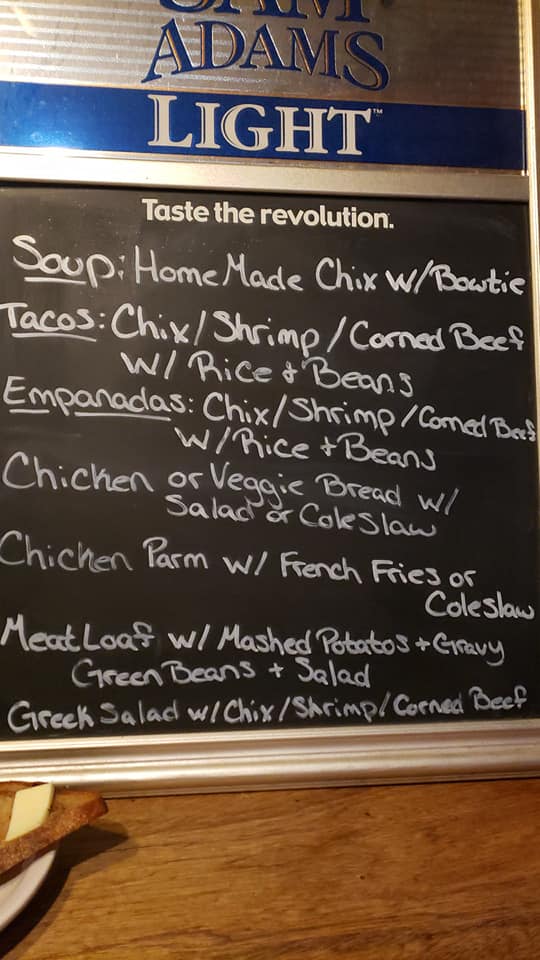 SAM
ADAMS
LIGHT™
Taste the revolution.
Soup: Home Made Chix w/Bowtie
Tacos: Chix/Shrimp/Corned Beef
W/ Rice & Beans
Empanadas: Chix/Shrimp/Corned Beef
W/Rice + Beans
Chicken or Veggie Bread w/
Salad or ColeSlaw
Chicken Parm w/ French Fries or
Coleslaw
Meat Loaf w/ Mashed Potatos + Gravy
Green Beans + Salad
Greek Salad w/Chix/Shrimp/Corned Beef